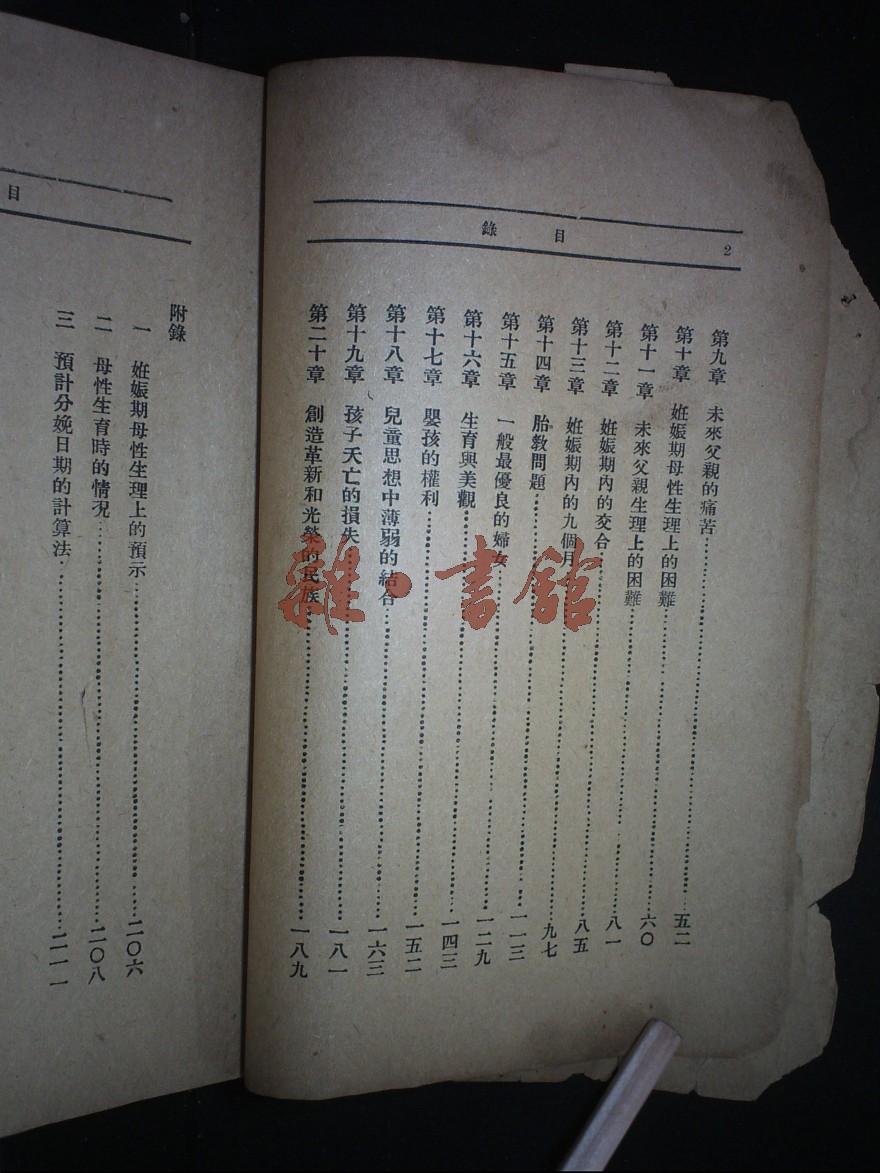 2 目錄
第九章 未來父親的痛苦……五二
第十章 姙娠期母性生理上的困難……六〇
第十一章 未來父親生理上的困難……八一
第十二章 姙娠期內的交合……八五
第十三章 姙娠期內的九個月……九七
第十四章 胎教問題……一一三
第十五章 一般最優良的婦女……一二九
第十六章 生育與美觀……一四三
第十七章 嬰孩的權利……一五二
第十八章 兒童思想中薄弱的結合……一六三
第十九章 孩子夭亡的損失……一八一
第二十章 創造革新和光榮的民族……一八九
目
附錄
一 姙娠期母性生理上的預示……二〇六
二 母性生育時的情況……二〇八
三 預計分娩日期的計算法……二一一
雜·書館